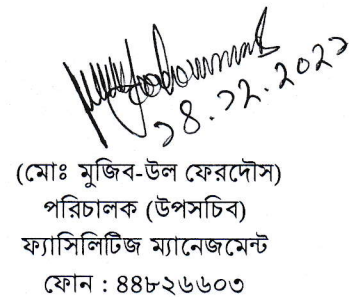 ১৪.১২.২০২১
(মোঃ মুজিব-উল ফেরদৌস)
পরিচালক (উপসচিব)
ফ্যাসিলিটিজ ম্যানেজমেন্ট
ফোন : ৪৪৮২৬৬০৩